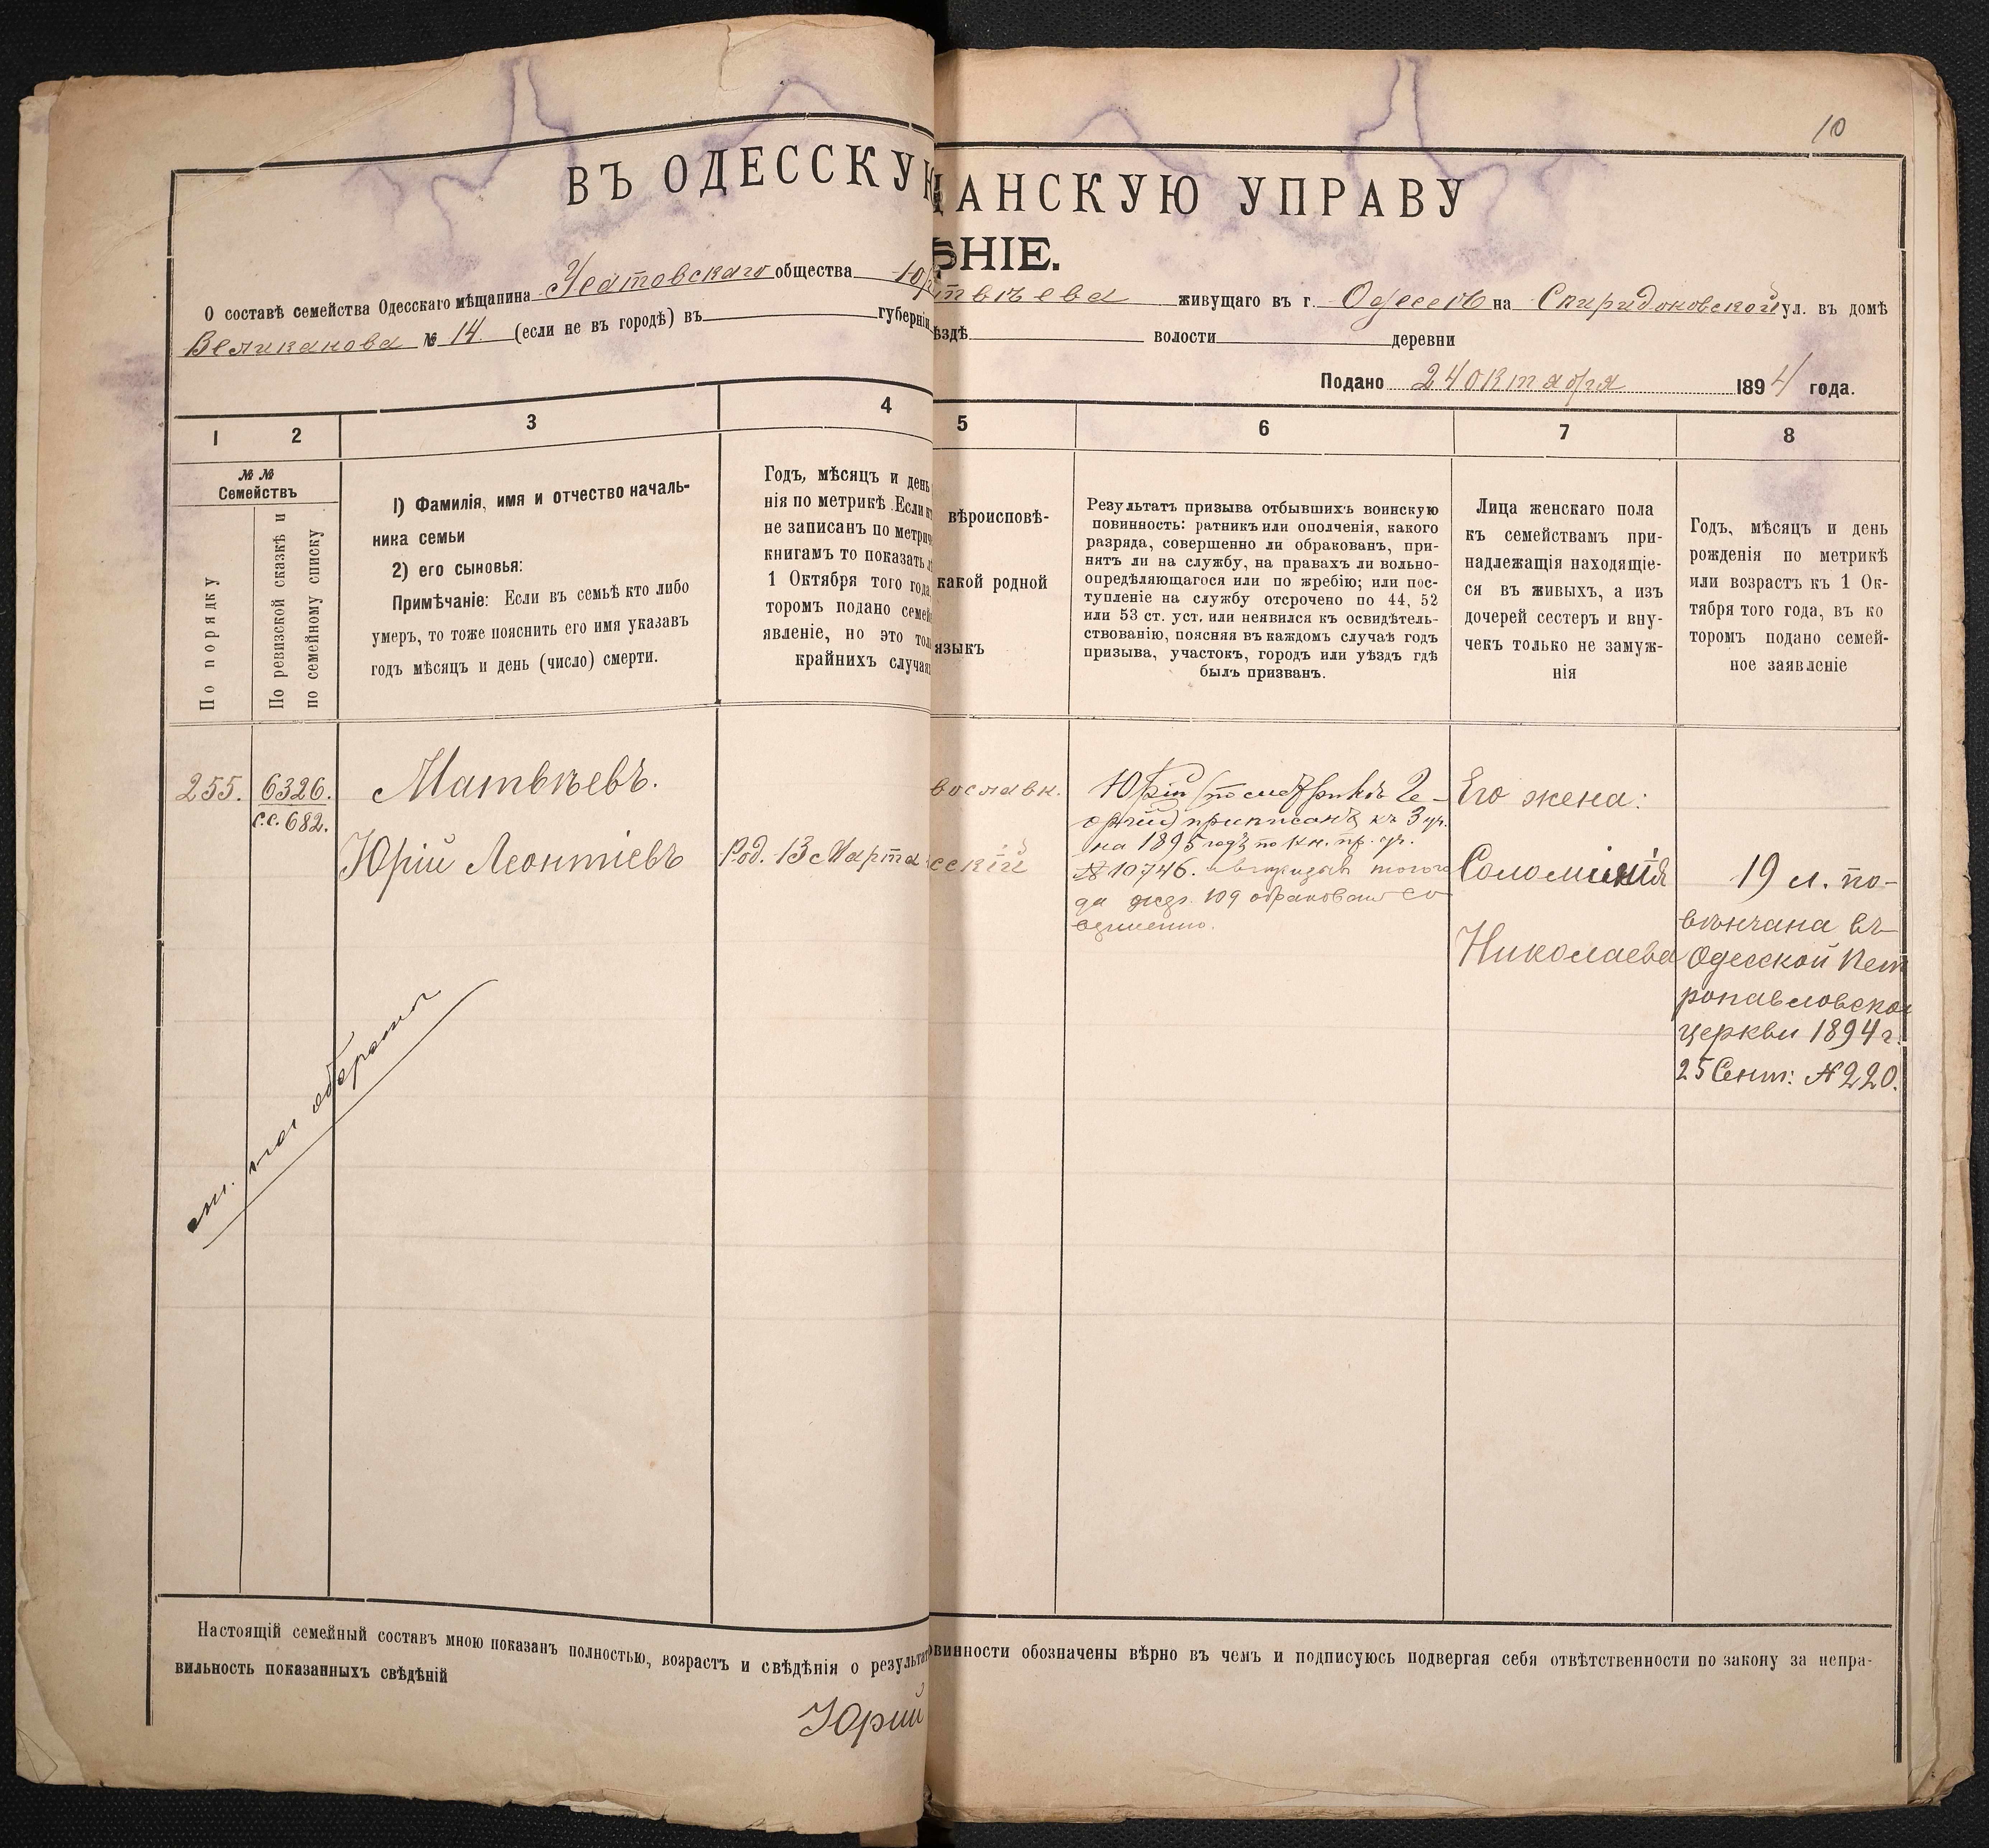 10
ВЪ ОДЕССКУЮ
ЩАНСКУЮ УПРАВУ
ѢНІЕ.
О составѣ семейства Одесскаго мѣщанина Усатовскаго общества Юр
твѣева живущаго въ г. Одессѣ на Спиридоновской ул. въ домѣ
Великанова № 14. (если не въ городѣ) въ губерніи
ѣздѣ волости деревни
Подано 24 октября 1894 года.
1 2 3 4 5 6 7 8
№№
Семействъ
По порядку
По ревизской сказкѣ и
по семейному списку
1) Фамилія, имя и отчество началь-
ника семьи
2) его сыновья:
Примѣчаніе: Если въ семьѣ кто либо
умеръ, то тоже пояснить его имя указавъ
годъ мѣсяцъ и день (число) смерти.
Годъ, мѣсяцъ и день
нія по метрикѣ. Если
не записанъ по метрич
книгамъ то показать
1 Октября того года,
торомъ подано семей
явленіе, но это тол
крайнихъ случая
вѣроисповѣ-
какой родной
языкъ
Результатъ призыва отбывшихъ воинскую
повинность: ратникъ или ополченія, какого
разряда, совершенно ли обракованъ, при-
нятъ ли на службу, на правахъ ли вольно-
опредѣляющагося или по жребію; или пос-
тупленіе на службу отсрочено по 44, 52
или 53 ст. уст. или неявился къ освидѣтель-
ствованію, поясняя въ каждомъ случаѣ годъ
призыва, участокъ, городъ или уѣздъ гдѣ
былъ призванъ.
Лица женскаго пола
къ семействамъ при-
надлежащія находящіе-
ся въ живыхъ, а изъ
дочерей сестеръ и вну-
чекъ только не замуж-
нія
Годъ, мѣсяцъ и день
рожденія по метрикѣ
или возрастъ къ 1 Ок-
тября того года, въ ко
торомъ подано семей-
ное заявленіе
255. 6326.
с.с. 682.
Матвѣевъ.
Юрій Леонтіевъ
Род. 13 Марта
вославн.
сскій
Юрій (по метрикѣ Ге-
оргій) приписанъ къ 3 уч.
на 1895 годъ по кн. пр. уч.
№ 10746. въ призывъ того го
да жер. 109 обракованъ со
вершенно.
Его жена:
Соломинія
Николаева
19 л. по-
вѣнчана въ
Одесской Пет
ропавловской
церкви 1894 г.
25 Сент: № 220.
см. на оборотѣ
Настоящій семейный составъ мною показанъ полностью, возрастъ и свѣдѣнія о результат
овинности обозначены вѣрно въ чемъ и подписуюсь подвергая себя отвѣтственности по закону за непра-
вильность показанныхъ свѣдѣній
Юрий